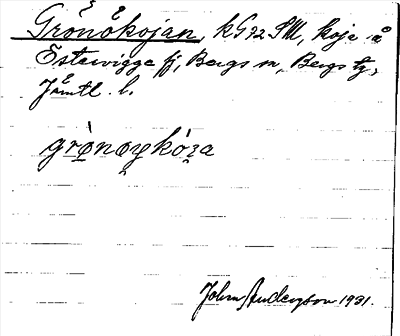 Grönökojan, kG72SM, koja å
Estervigge fj, Bergs sn, Bergs tg,
Jämtl. l.
grǿnøykóʒa
John Anderson 1931.